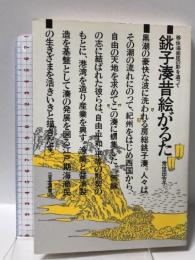 移住漁商民の跡を追って
銚子湊昔絵がるた
常世田令子
■黒潮の豪快な波に洗われる房総銚子湊。人々は、
その潮の流れにのって、紀州をはじめ西国から、
自由の天地を求めてこの湊に慣集した。
の志に結ばれた彼らは、自由・平和・平等の
もとに、港湾を造り、産業を興す。
造を基盤として湊の発展を図る江戸期海商民
の生きざまを活きいきと描きだす。